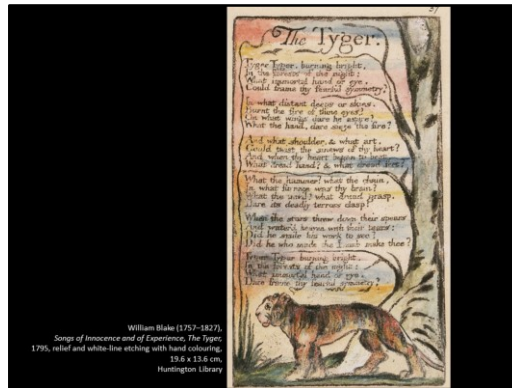 The Tyger.
Tyger Tyger, burning bright,
In the forests of the night:
What immortal hand or eye,
Could frame thy fearful symmetry?
In what distant deeps or skies,
Burnt the fire of thine eyes?
On what wings dare he aspire?
What the hand, dare sieze the fire?
And what shoulder, & what art,
Could twist the sinews of thy heart?
And when thy heart began to beat,
What dread hand? & what dread feet?
What the hammer? what the chain,
In what furnace was thy brain?
What the anvil? what dread grasp,
Dare its deadly terrors clasp?
When the stars threw down their spears
And water'd heaven with their tears:
Did he smile his work to see?
Did he who made the Lamb make thee?
Tyger Tyger burning bright,
In the forests of the night:
What immortal hand or eye,
Dare frame thy fearful symmetry?
William Blake (1757–1827),
Songs of Innocence and of Experience, The Tyger,
1795, relief and white-line etching with hand colouring,
19.6 x 13.6 cm,
Huntington Library